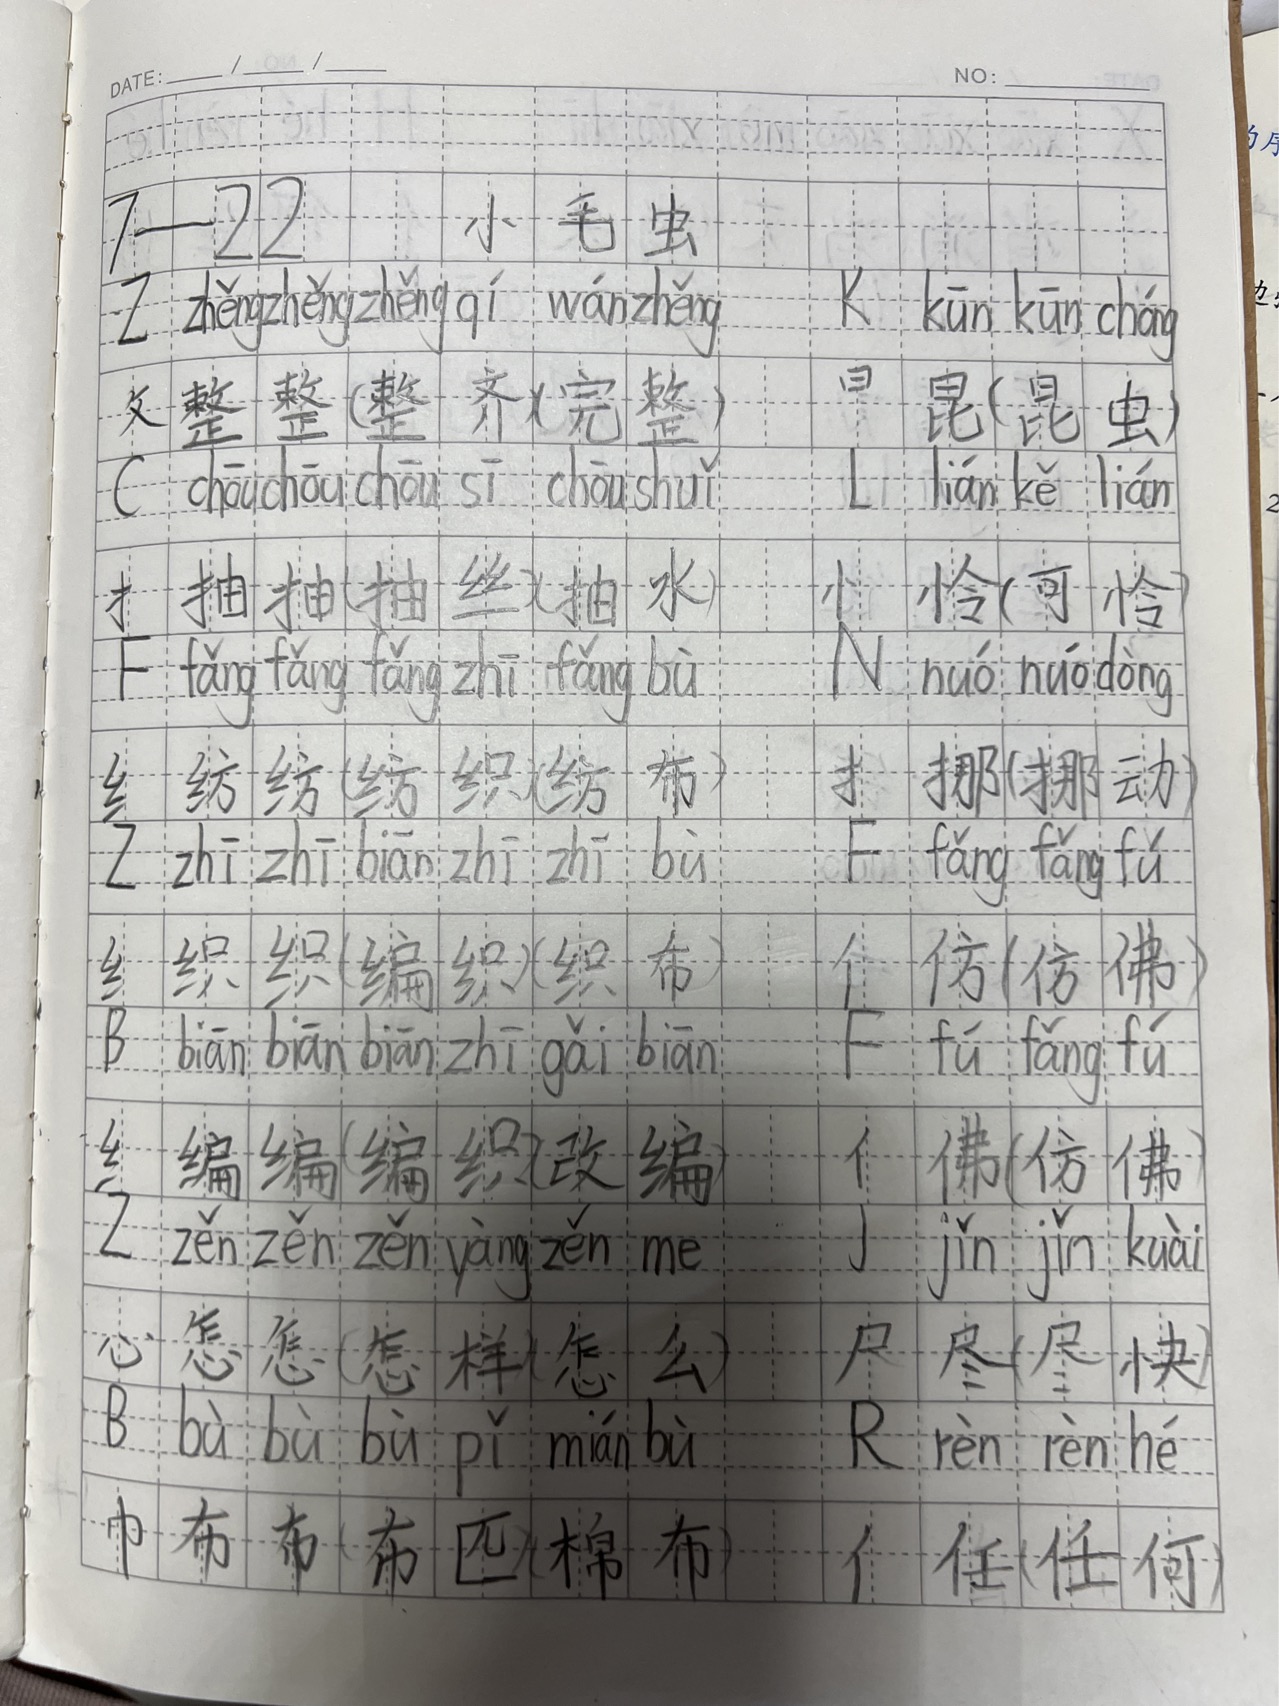 DATE: / / NO:
7—22 小毛虫
Z zhěng zhěng zhěng qí wán zhěng K kūn kūn cháng
攵 整 整 (整 齐)(完 整) 日 昆 (昆 虫)
C chōu chōu chōu sī chōu shuǐ L lián kě lián
扌 抽 抽 (抽 丝)(抽 水) 忄 怜 (可 怜)
F fǎng fǎng fǎng zhī fǎng bù N nuó nuó dòng
纟 纺 纺 (纺 织)(纺 布) 扌 挪 (挪 动)
Z zhī zhī biān zhī zhī bù F fǎng fǎng fú
纟 织 织 (编 织)(织 布) 亻 仿 (仿 佛)
B biān biān biān zhī gǎi biān F fú fǎng fú
纟 编 编 (编 织)(改 编) 亻 佛 (仿 佛)
Z zěn zěn zěn yàng zěn me J jǐn jǐn kuài
心 怎 怎 (怎 样)(怎 么) 尸 尽 (尽 快)
B bù bù bù pǐ mián bù R rèn rèn hé
巾 布 布 (布 匹)(棉 布) 亻 任 (任 何)